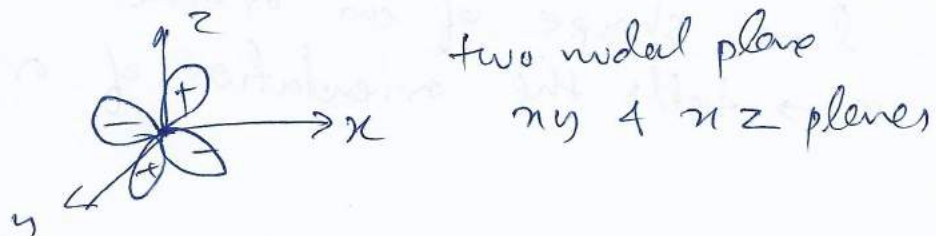 z
two nodal plane
+
-
x
xy & xz planes
-
+
y